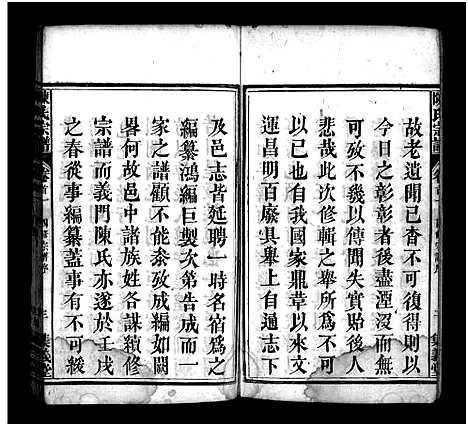 故老遺聞已杳不可復得則耳
今之彰彰者今日後盡湮沒而無
可攷殆不幾以傳聞失實貽吾
悲哉此次修輯之舉所為不可
以已也亦以我國家鼎革以來
運昌明百廢具舉上自通志下
及邑志皆延聘一時名宿為之
編纂鴻編巨製次第告成而一
家之譜顧不能叅攷成編如闕
畧何故邑中諸族姓各謀續修
宗譜而義門陳氏亦遂於壬戌
之春從事編纂葢事有不可
陳氏宗譜
卷首一
四修宗譜序
三
集義堂